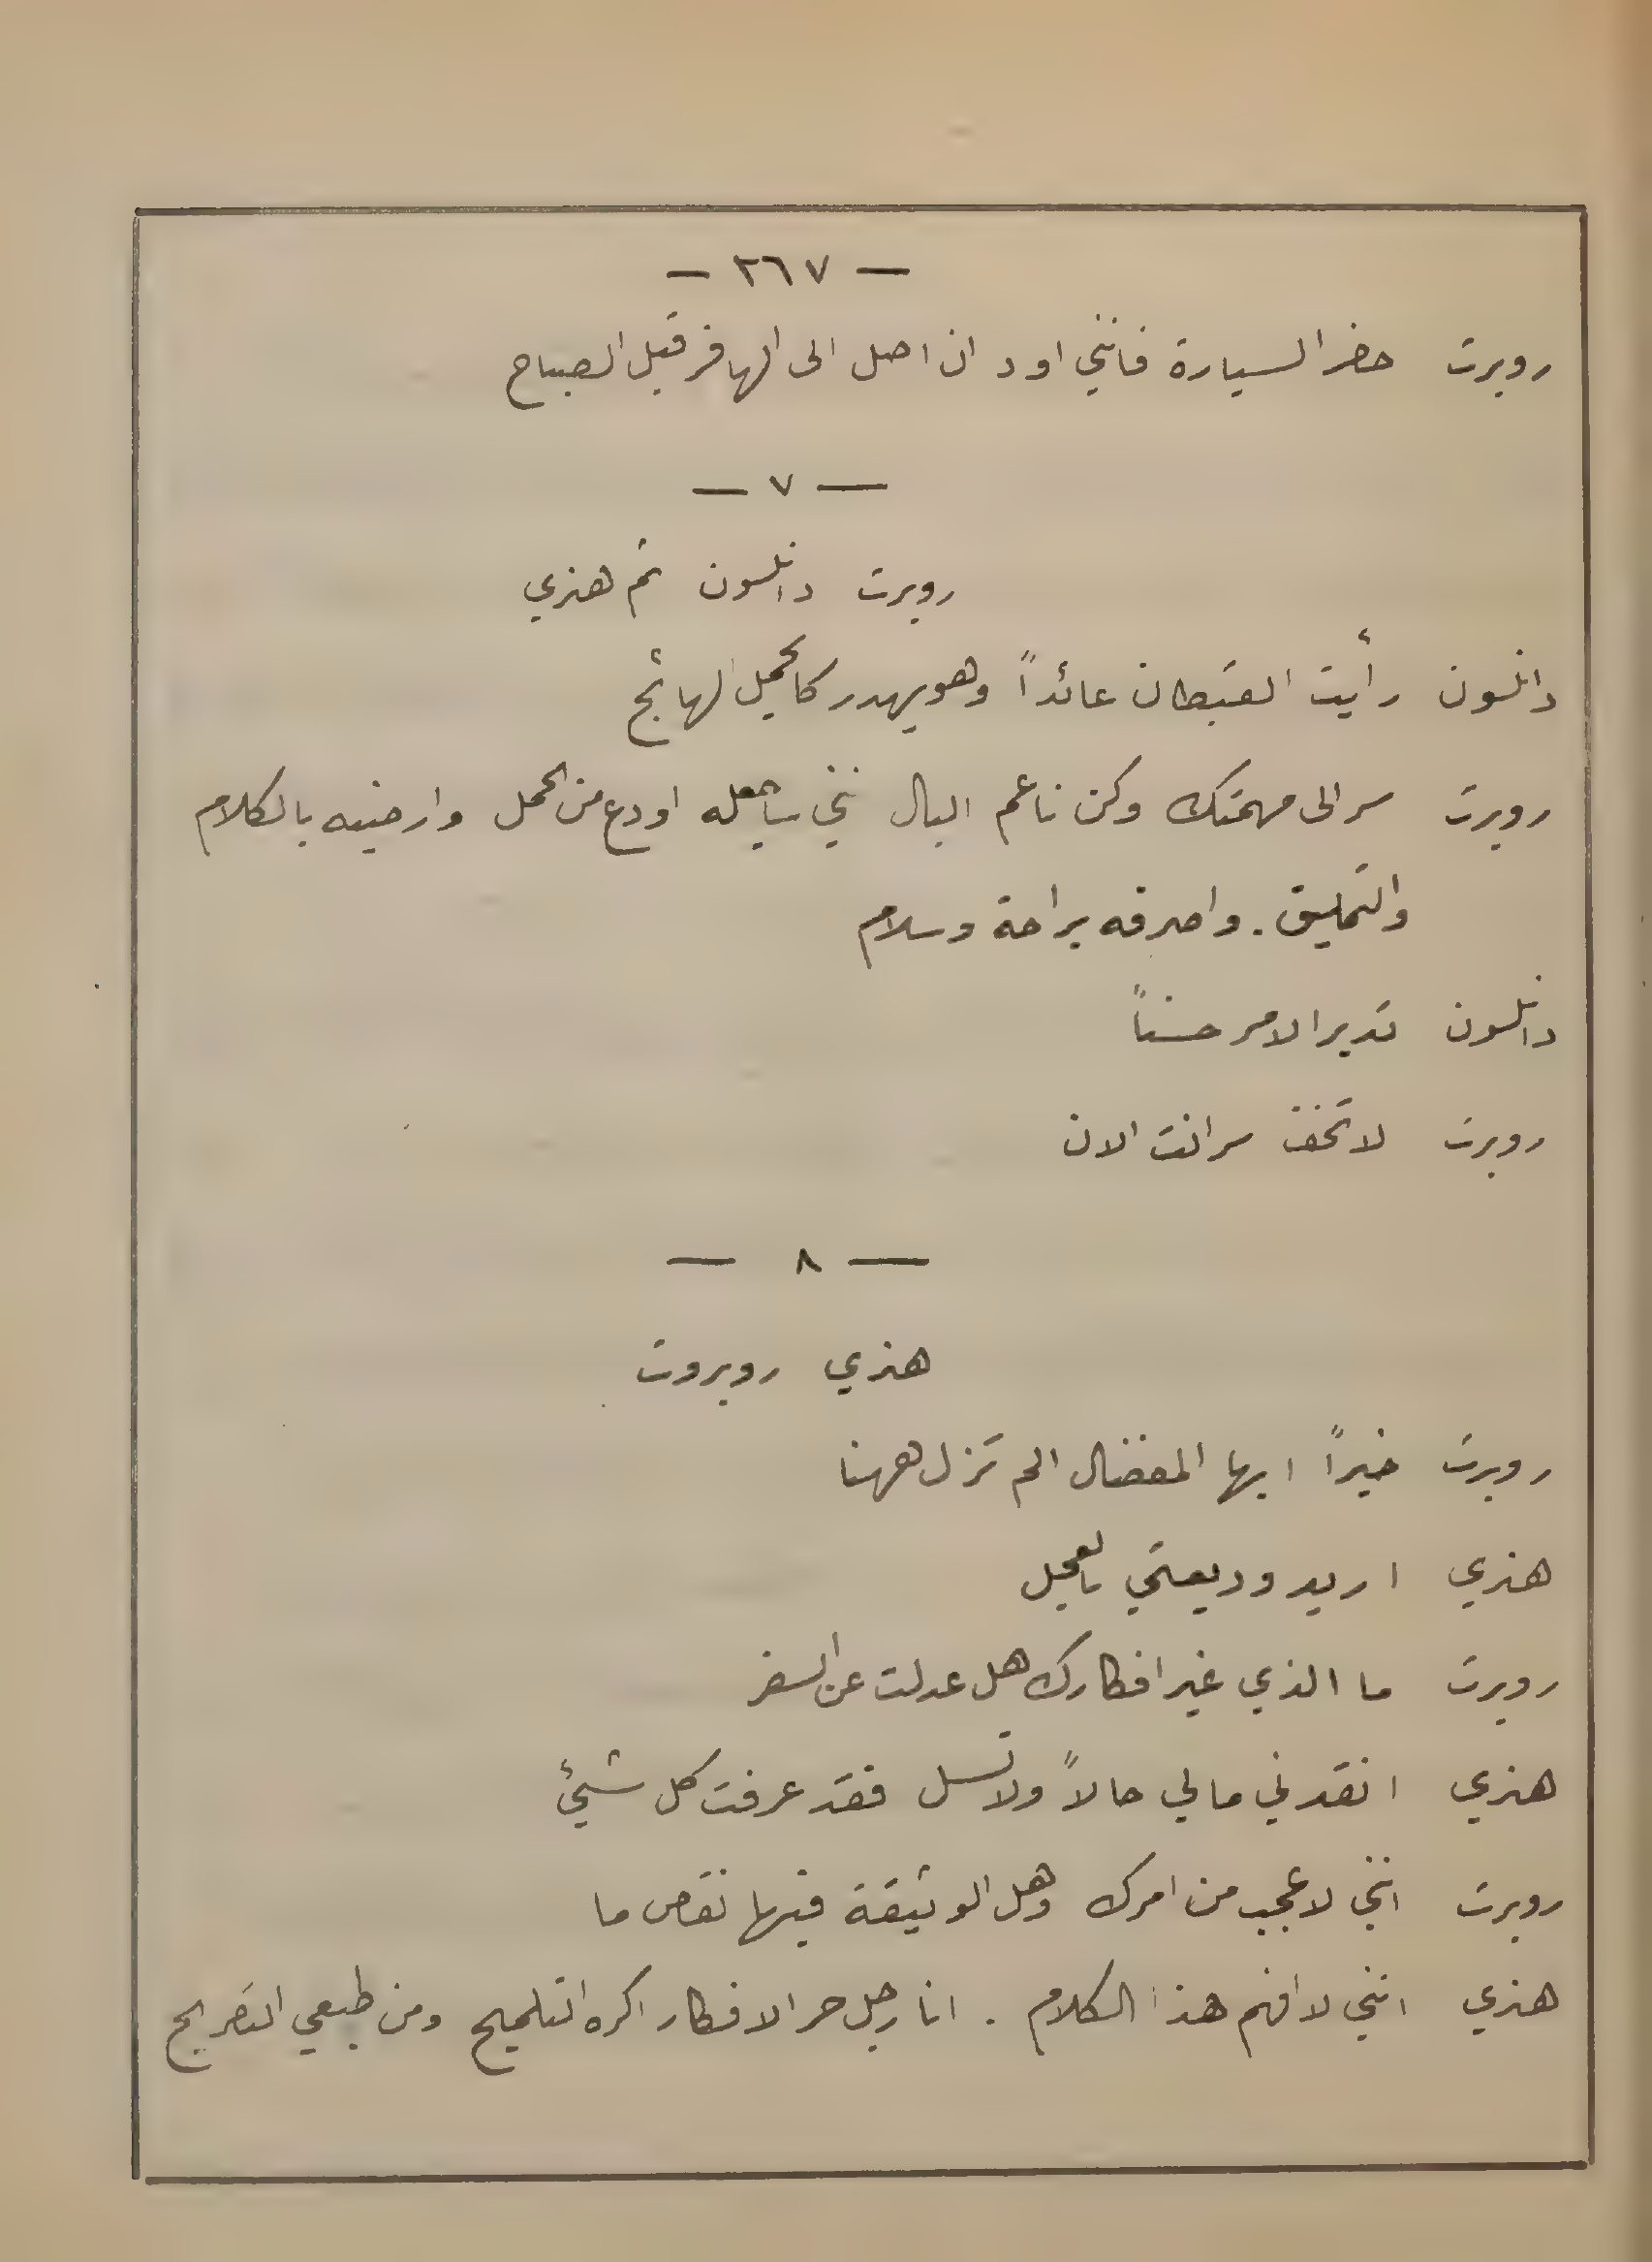 — ٢٦٧ —
روبرت حضر السيارة فانني اود ان اصل الى الهافر قبل الصباح
— ٧ —
روبرت دانلسون ثم هنري
دانلسون رأيت القبطان عائداً وهو يهدر كالجمل الهائج
روبرت سر الى مهمتك وكن ناعم البال نني ساجعله اودع من الحمل وارضيه بالكلام
والتمليق. واصرفه براحة وسلام
دانلسون تدبر الامر حسناً
روبرت لا تخف سر انت الان
— ٨ —
هنري روبروت
روبرت خيراً ايها المفضال الم تزل ههنا
هنري اريد وديعتي بالعجل
روبرت ما الذي غير افكارك هل عدلت عن السفر
هنري انقدني مالي حالاً ولا تسل فقد عرفت كل شيئ
روبرت انني لاعجب من امرك وهل الوثيقة فيها نقص ما
هنري انني لا افهم هذا الكلام . انا رجل حر الافكار اكره التلميح ومن طبعي التصريح